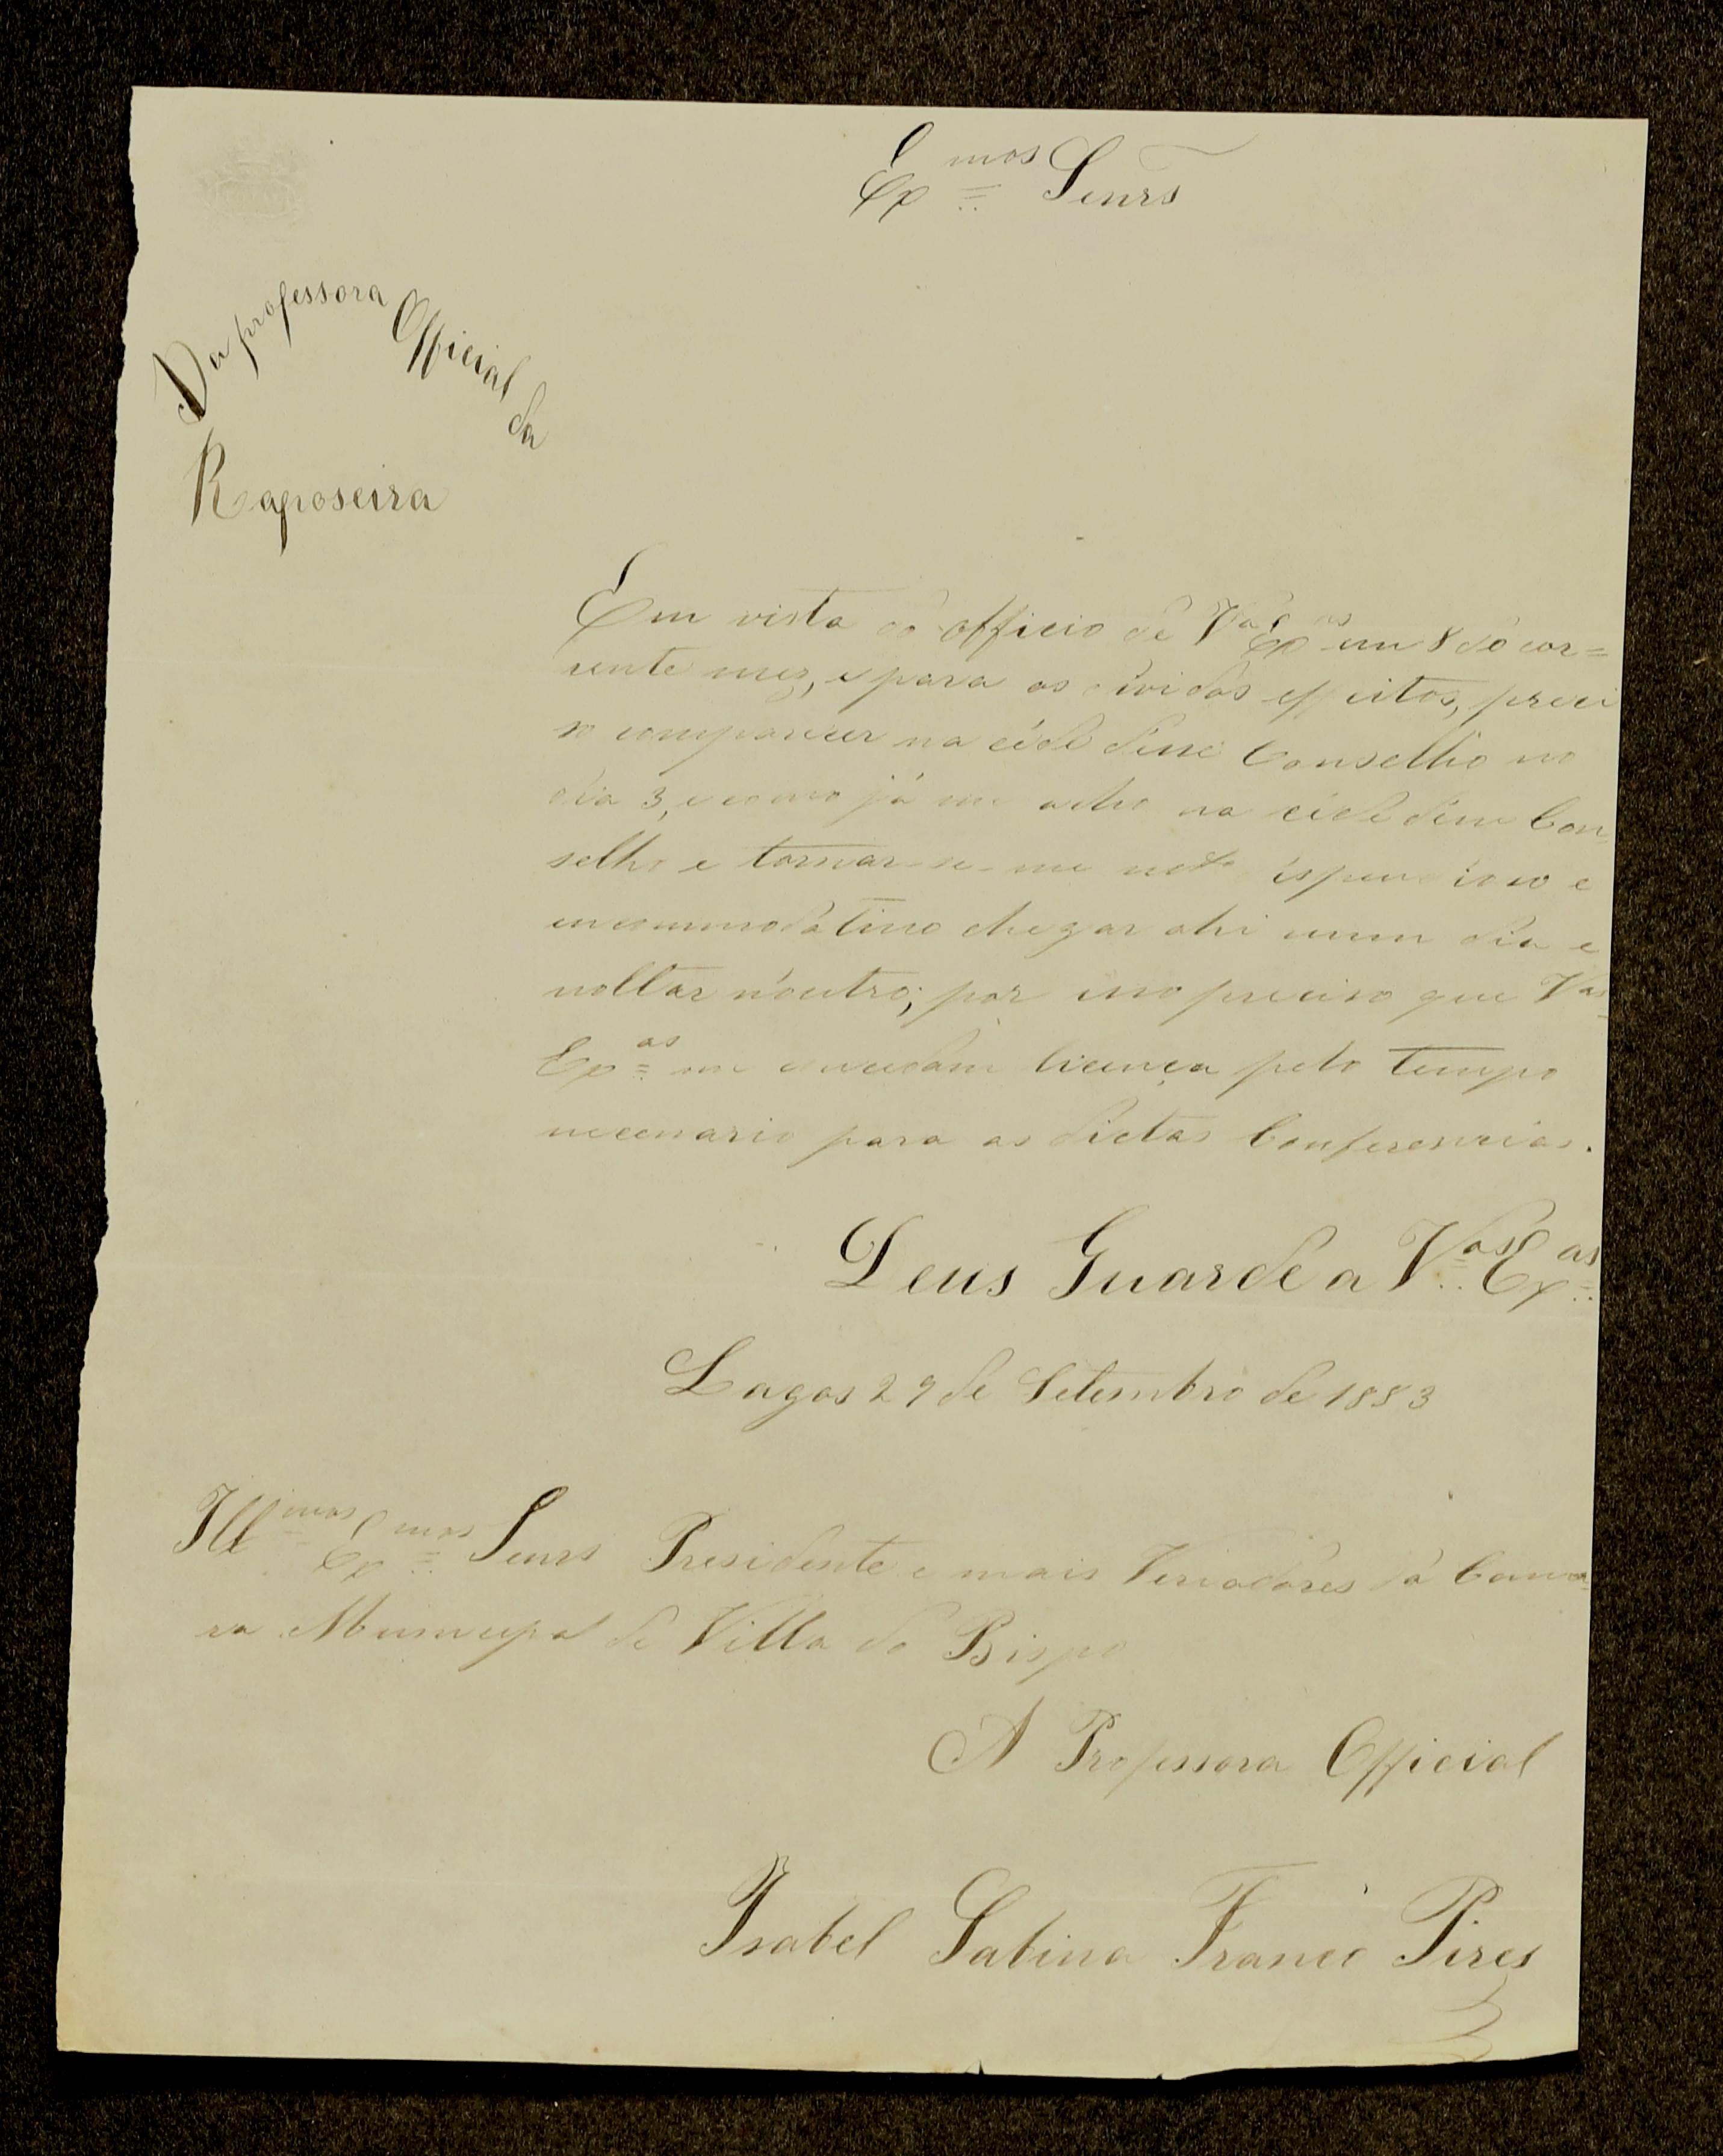 Exmos Senrs
Da professora Official da
Raposeira
Em vista do officio de Vas Exas em 8 do cor=
rente mez, e para os dividos effeitos, preci
so comparecer na céde desse Conselho no
dia 3, e como já me acho na céde desse Con
selho e tornar-se-me despendioso e
encommodativo chegar ahi num dia e
voltar n'outro; por isso preciso que Vas
Exas me concedam licença pelo tempo
necessario para as dictas Conferencias.
Deus Guarde a Vas Exas
Lagos 29 de Setembro de 1883
Illmos Exmos Senrs Presidente e mais Veriadores da Cama
ra Municipal de Villa do Bispo
A Professora Official
Isabel Sabina Franco Pires